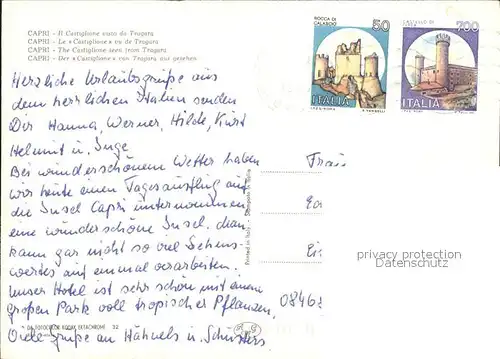 CAPRI - Il Castiglione visto da Tragara
CAPRI - Le «Castiglione» vu de Tragara
CAPRI - The Castiglione seen from Tragara
CAPRI - Der «Castiglione» von Tragara aus gesehen
ROCCA DI
CALASCIO
50
ITALIA
700
ITALIA
Herzliche Urlaubsgrüße aus
dem herrlichen Italien senden
Dir Hanna, Werner, Hilde, Kurt
Helmut u. Inge
Bei wunderschönem Wetter haben
wir heute einen Tagesausflug auf
die Insel Capri unternommen
eine wunderschöne Insel. Man
kann gar nicht so viel Sehens-
wertes auf einmal verarbeiten.
Unser Hotel ist sehr schön mit einem
großen Park voll tropischer Pflanzen,
Viele Grüße an Hähnels u. Schusters
Frau
privacy protection
Datenschutz
0846
Printed in Italy
FOTOCOLOR KODAK EKTACHROME 32